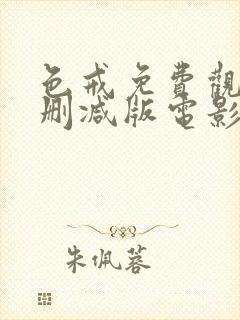 色戒免費觀
刪減版電影
朱佩蓉